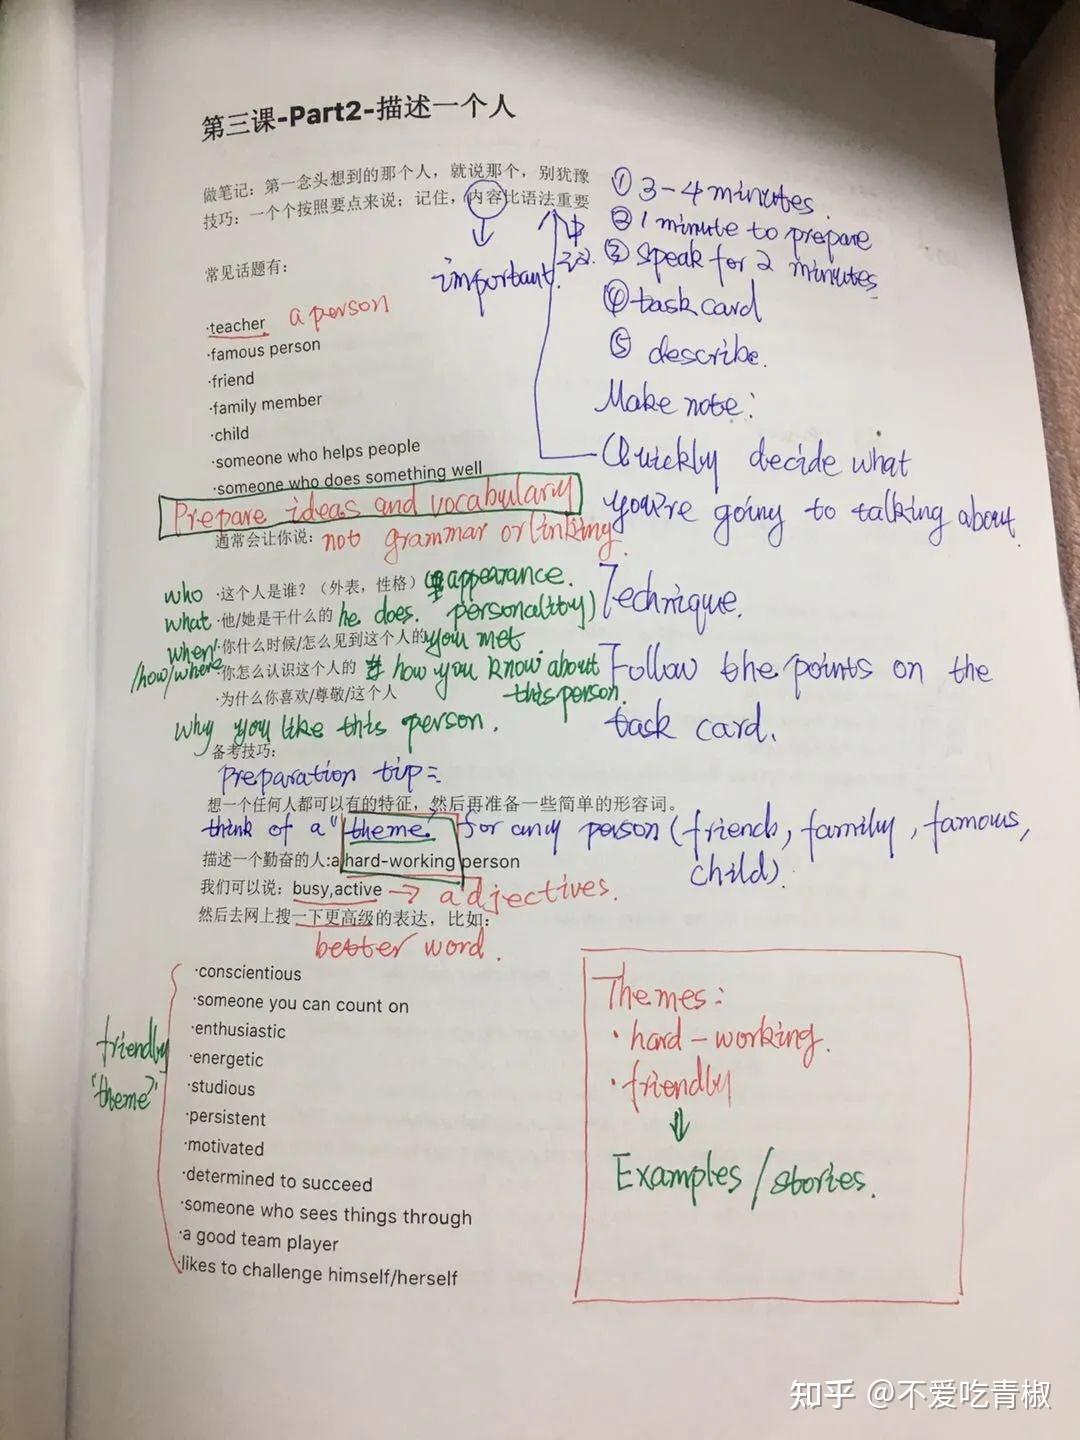 第三课-Part2-描述一个人
做笔记：第一念头想到的那个人，就说那个，别犹豫
技巧：一个个按照要点来说；记住，内容比语法重要
important
① 3-4 minutes.
② 1 minute to prepare
③ speak for 2 minutes
④ task card
⑤ describe.
常见话题有：
·teacher a person
·famous person
·friend
·family member
·child
·someone who helps people
·someone who does something well
Make note:
Quickly decide what
you're going to talking about.
Prepare ideas and vocabulary
通常会让你说： not grammar or linking.
who ·这个人是谁？（外表，性格） (appearance.
what ·他/她是干什么的 he does. personality)
when ·你什么时候/怎么见到这个人的 you met
/how/where ·你怎么认识这个人的 how you know about
this person.
·为什么你喜欢/尊敬/这个人
why you like this person.
Technique.
Follow the points on the
task card.
备考技巧：
Preparation tip:
想一个任何人都可以有的特征，然后再准备一些简单的形容词。
think of a "theme" for any person (friend, family, famous,
child).
描述一个勤奋的人:a hard-working person
我们可以说：busy,active → adjectives.
然后去网上搜一下更高级的表达，比如：
better word.
·conscientious
·someone you can count on
·enthusiastic
·energetic
·studious
·persistent
·motivated
·determined to succeed
·someone who sees things through
·a good team player
·likes to challenge himself/herself
friendly
"theme"
Themes:
· hard-working.
· friendly
Examples/stories.
知乎 @不爱吃青椒